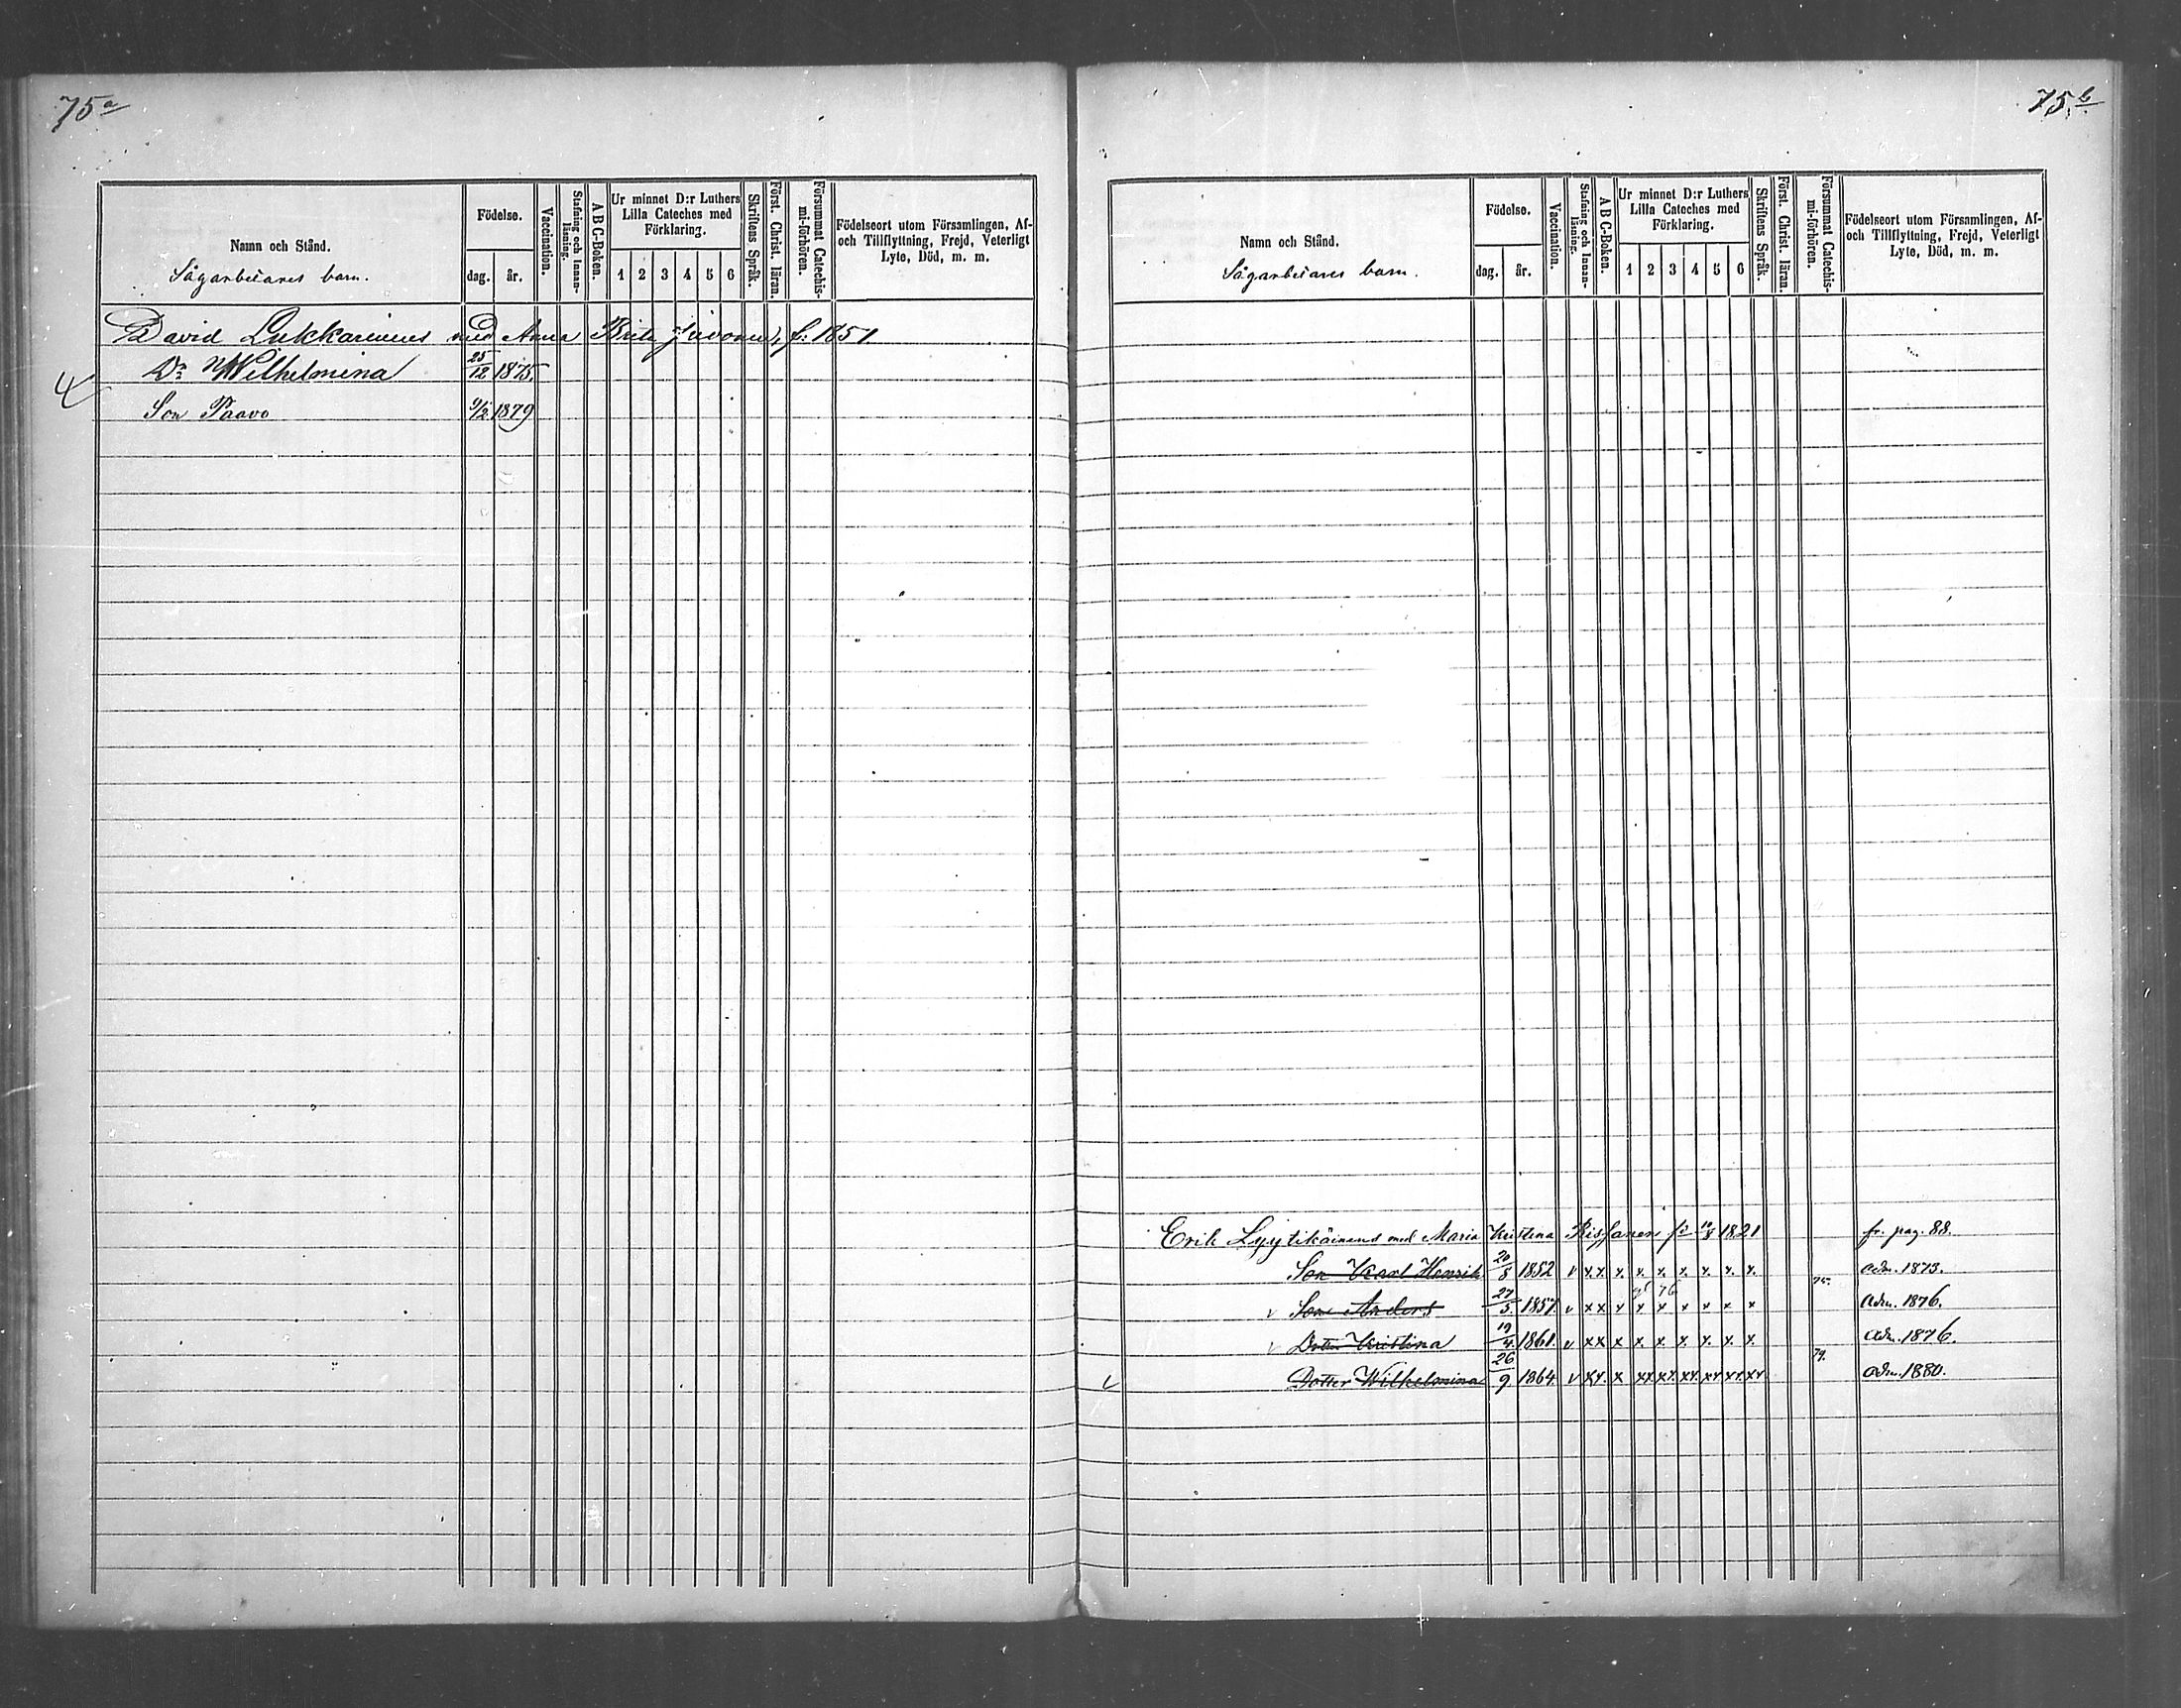 75a
Namn och Stånd.
Sågarbetares barn.
Födelse.
dag. år.
Vaccination.
Stafning och Innanläsning.
A B C-Boken.
Ur minnet D:r Luthers Lilla Cateches med Förklaring.
1 2 3 4 5 6
Skriftens Språk.
Först. Christ. läran.
Försummat Catechismi-förhören.
Födelseort utom Församlingen, Af- och Tillflyttning, Frejd, Veterligt Lyte, Död, m. m.
David Lukkarinens med Anna Brita f: 1851
Dr Wilhelmina 25/12 1875.
Son Paavo 9/2 1879
75b
Namn och Stånd.
Sågarbetares barn.
Födelse.
dag. år.
Vaccination.
Stafning och Innanläsning.
A B C-Boken.
Ur minnet D:r Luthers Lilla Cateches med Förklaring.
1 2 3 4 5 6
Skriftens Språk.
Först. Christ. läran.
Försummat Catechismi-förhören.
Födelseort utom Församlingen, Af- och Tillflyttning, Frejd, Veterligt Lyte, Död, m. m.
Erik Lyytikäinens med Maria Kristina Rissanen f: 10/8 1821 fr. pag. 88.
Son Karl Henrik 20/8 1852 v x.x. x. x. x. x. x. x. x. adm. 1873.
v Son Anders 27/5 1857 v x x x x x x x x x 75. adm. 1876.
v Dotter Kristina 19/4 1861. v x x x x. x. x. x. x. x. adm. 1876.
v Dotter Wilhelmina 26/9 1864 v x x. x xx xx. xx. xx xx xx. 79. adm. 1880.